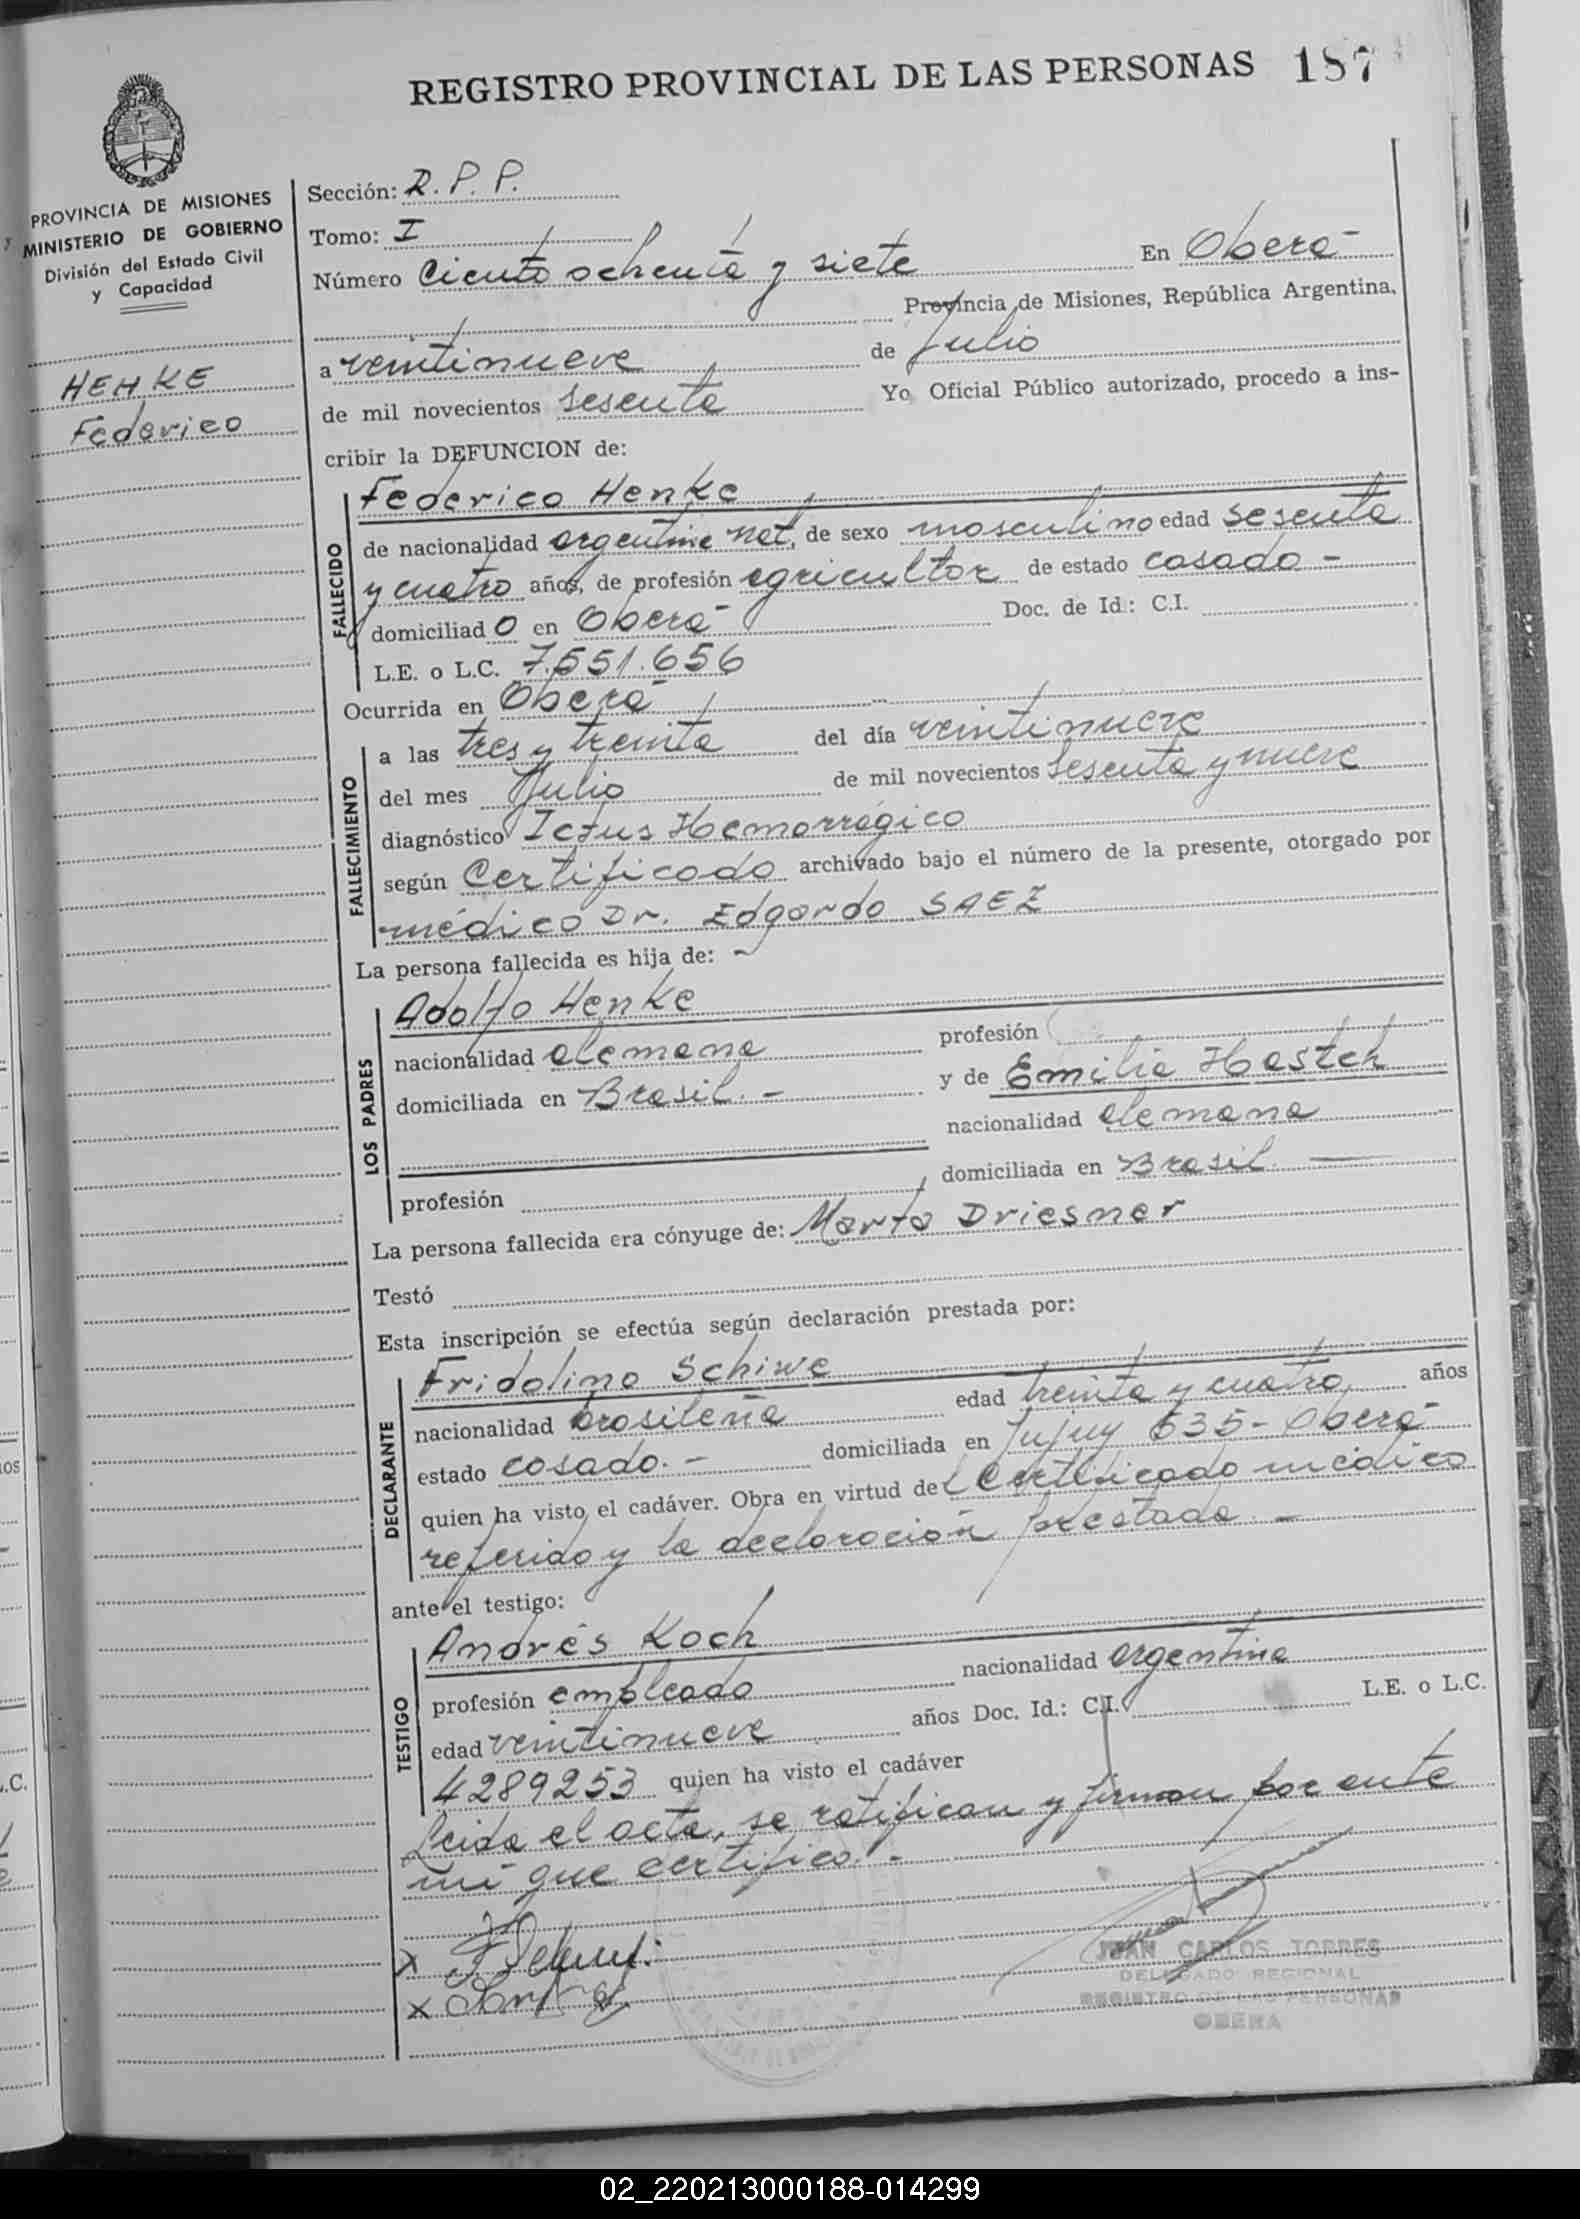 REGISTRO PROVINCIAL DE LAS PERSONAS 187
PROVINCIA DE MISIONES
MINISTERIO DE GOBIERNO
División del Estado Civil
y Capacidad
HENKE
Federico
Sección: R. P. P.
Tomo: I
Número Ciento ochenta y siete En Oberá
Provincia de Misiones, República Argentina,
a veintinueve de Julio
de mil novecientos sesenta Yo Oficial Público autorizado, procedo a ins-
cribir la DEFUNCION de:
FALLECIDO
Federico Henke
de nacionalidad argentina nat, de sexo masculino edad sesenta
y cuatro años, de profesión agricultor de estado casado -
domiciliado en Oberá Doc. de Id: C.I.
L.E. o L.C. 7.551.656
Ocurrida en Oberá
FALLECIMIENTO
a las tres y treinta del día veintinueve
del mes Julio de mil novecientos sesenta y nueve
diagnóstico Ictus Hemorrágico
según Certificado archivado bajo el número de la presente, otorgado por
médico Dr. Edgardo SAEZ
La persona fallecida es hija de: -
LOS PADRES
Adolfo Henke
nacionalidad alemana profesión
domiciliada en Brasil. - y de Emilia Hastch
nacionalidad alemana
profesión domiciliada en Brasil.
La persona fallecida era cónyuge de: Marta Driesner
Testó
Esta inscripción se efectúa según declaración prestada por:
DECLARANTE
Fridolino Schiwe
nacionalidad brasileña edad treinta y cuatro años
estado casado. - domiciliada en Jujuy 535 - Oberá
quien ha visto el cadáver. Obra en virtud del Certificado médico
referido y la declaración prestada. -
ante el testigo:
TESTIGO
Andrés Koch
profesión empleado nacionalidad argentina
edad veintinueve años Doc. Id.: C.I. L.E. o L.C.
4289253 quien ha visto el cadáver
Leída el acta, se ratifican y firman por ante
mí que certifico. -
x
x
JUAN CARLOS TORRES
DELEGADO REGIONAL
REGISTRO DE LAS PERSONAS
OBERA
02_220213000188-014299